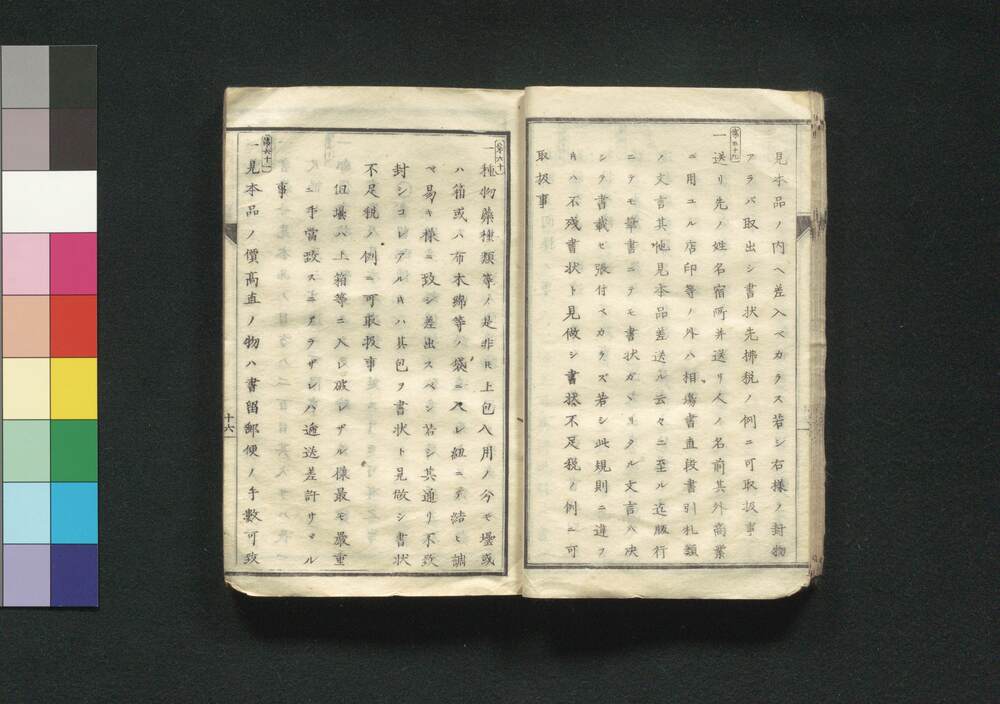 見本品ノ内ヘ差入ベカラス若シ右様ノ封物
アラバ取出シ書状先拂税ノ例ニ可取扱事
第五十九
一送リ先ノ姓名宿所并送リ人ノ名前其外商業
ニ用ユル店印等ノ外ハ相場書直段書引札類
ノ文言其他見本品差送ル云々ニ至ル迄版行
ニテモ筆書ニテモ書状ガマシクル文言ハ决
シテ書載セ張付ベカラズ若シ此規則ニ違フ
片ハ不残書状ト見做シ書状不足税ノ例ニ可
取扱事
第六十
一種物藥種類等ノ是非𪜈上包入用ノ分モ壜或
ハ箱或ハ布木綿等ノ袋ニ入レ紐ニテ結ヒ調
ベ易キ様ニ致シ差出スベシ若シ其通リ不致
封シコレアル片ハ其包ヲ書状ト見做シ書状
不足税ノ例ニ可取扱事
但壜ハ上箱等ニ入レ破レザル様最モ嚴重
ニ手當致スニアラザレバ逓送差許サヾル
事
第六十一
一見本品ノ價高直ノ物ハ書留郵便ノ手數可致
十六